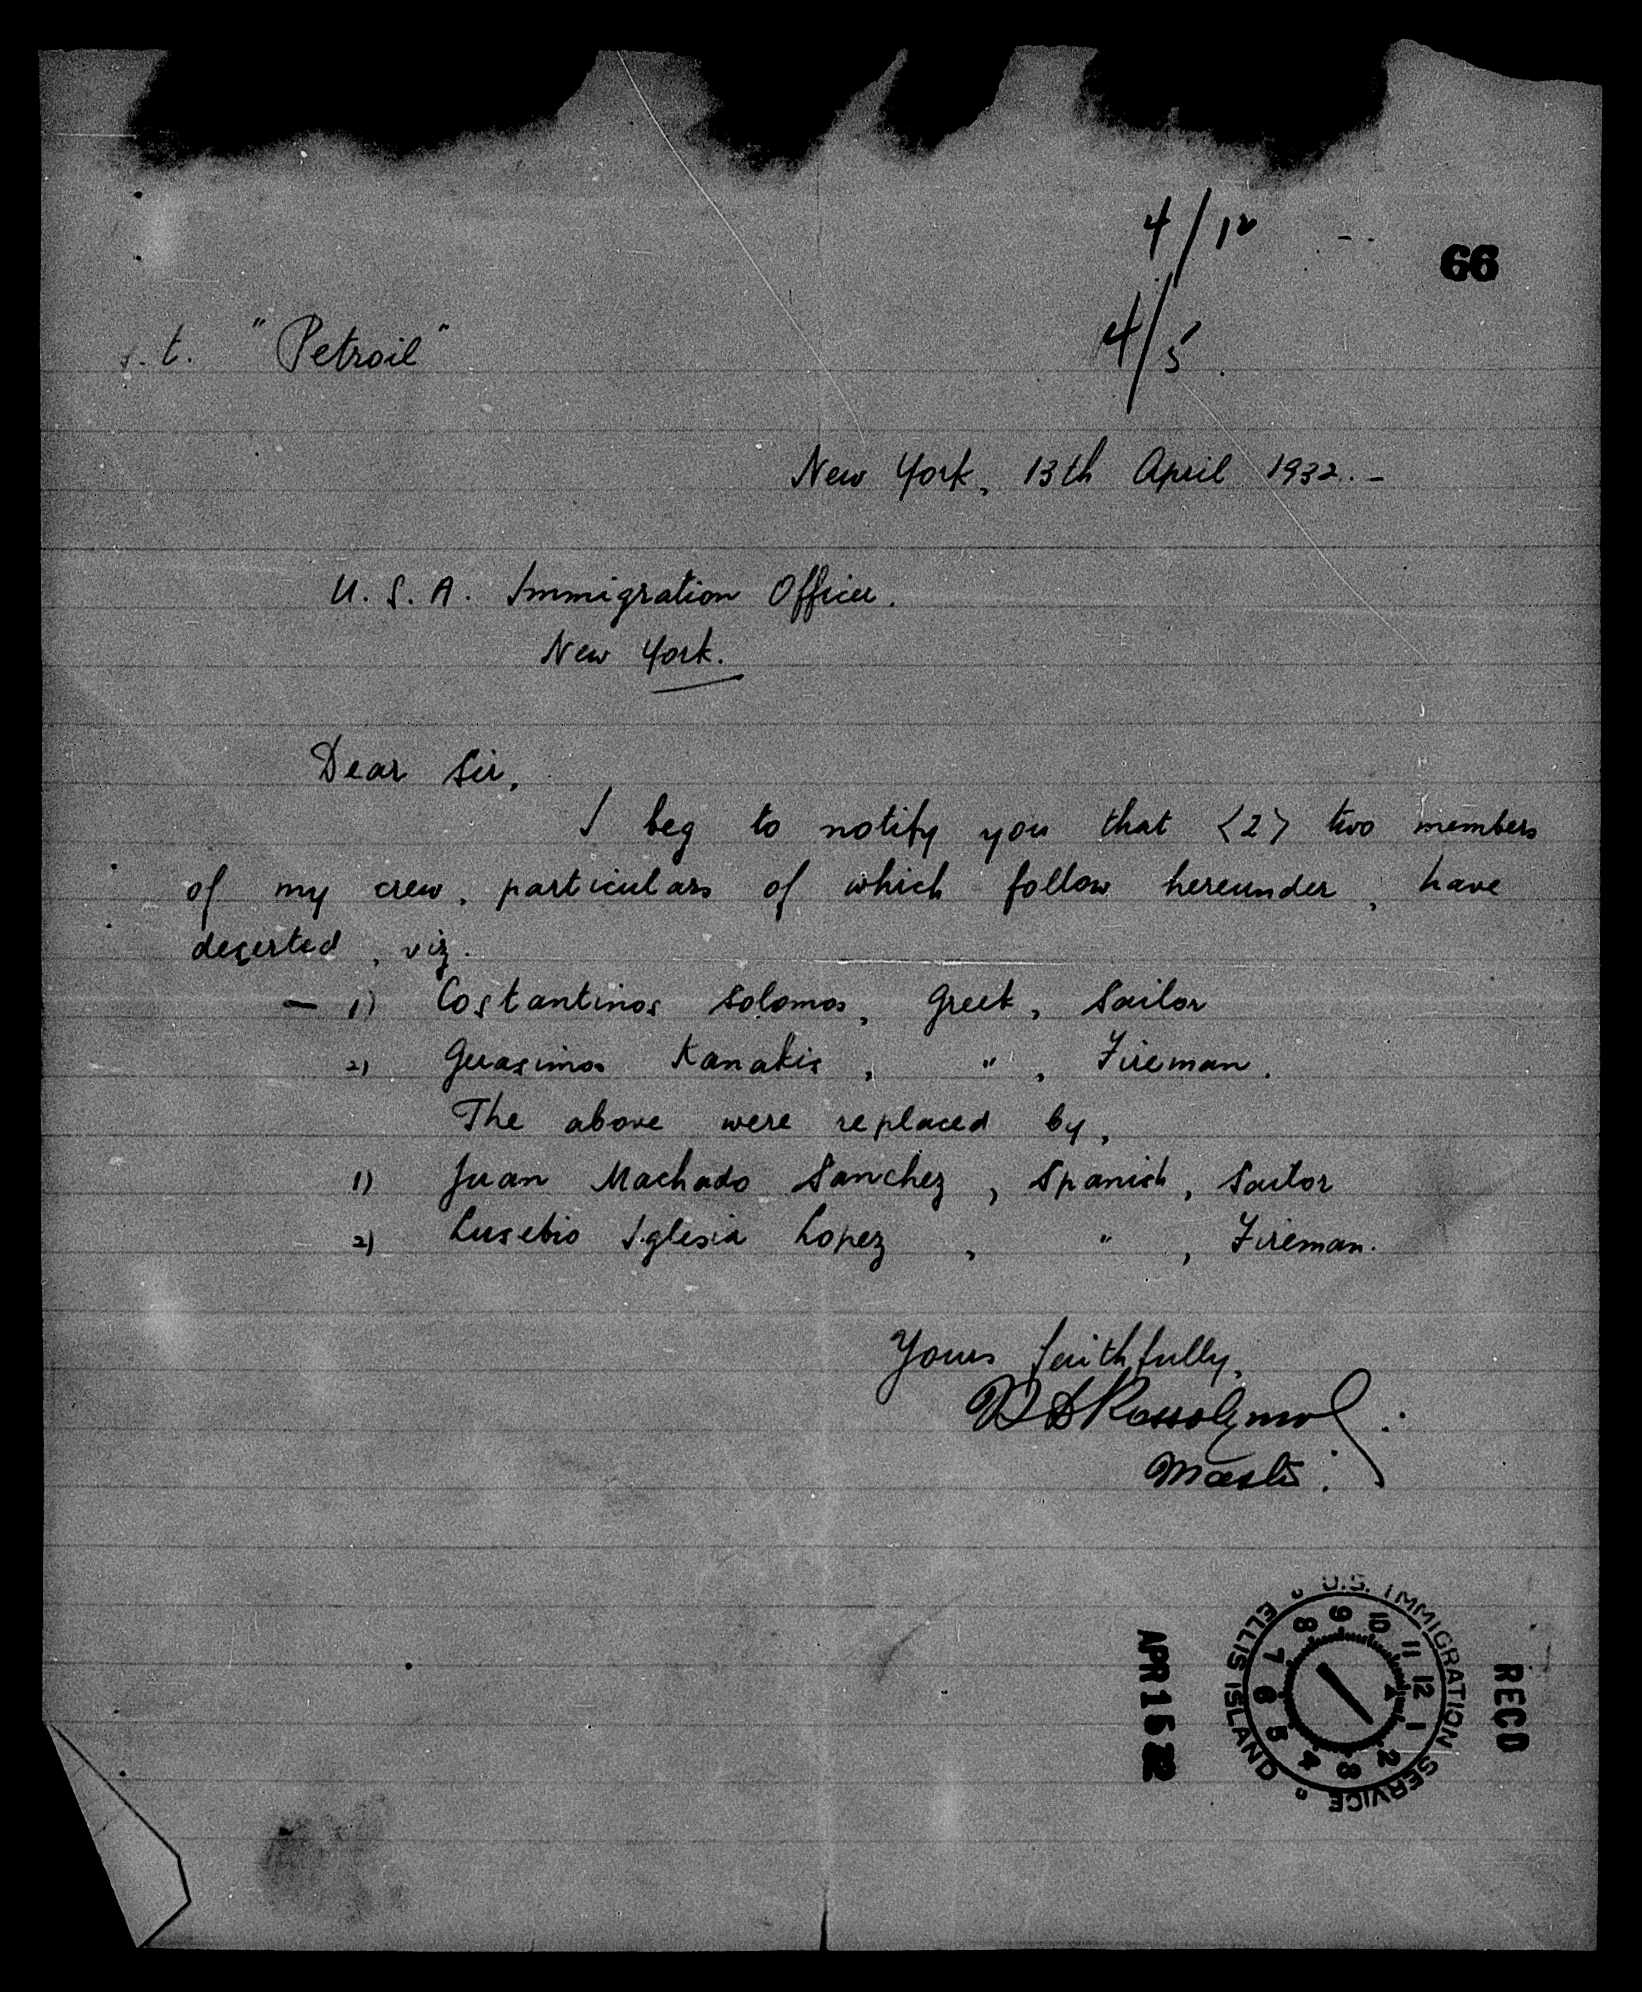 4/12
66
s.t. "Petroil"
4/5
New York, 13th April 1932.-
U.S.A. Immigration Officer.
New York.
Dear Sir,
I beg to notify you that <2> two members
of my crew, particulars of which follow hereunder, have
deserted, viz.
— 1) Costantinos Solomos, Greek, Sailor
2) Guasimos Kanakis, " , Fireman.
The above were replaced by,
1) Juan Machado Sanchez, Spanish, Sailor
2) Eusebio Iglesia Lopez, " , Fireman.
Yours faithfully,
Master.
RECD
U.S. IMMIGRATION SERVICE
ELLIS ISLAND
12 1 2 3 4 5 6 7 8 9 10 11
APR 16 32